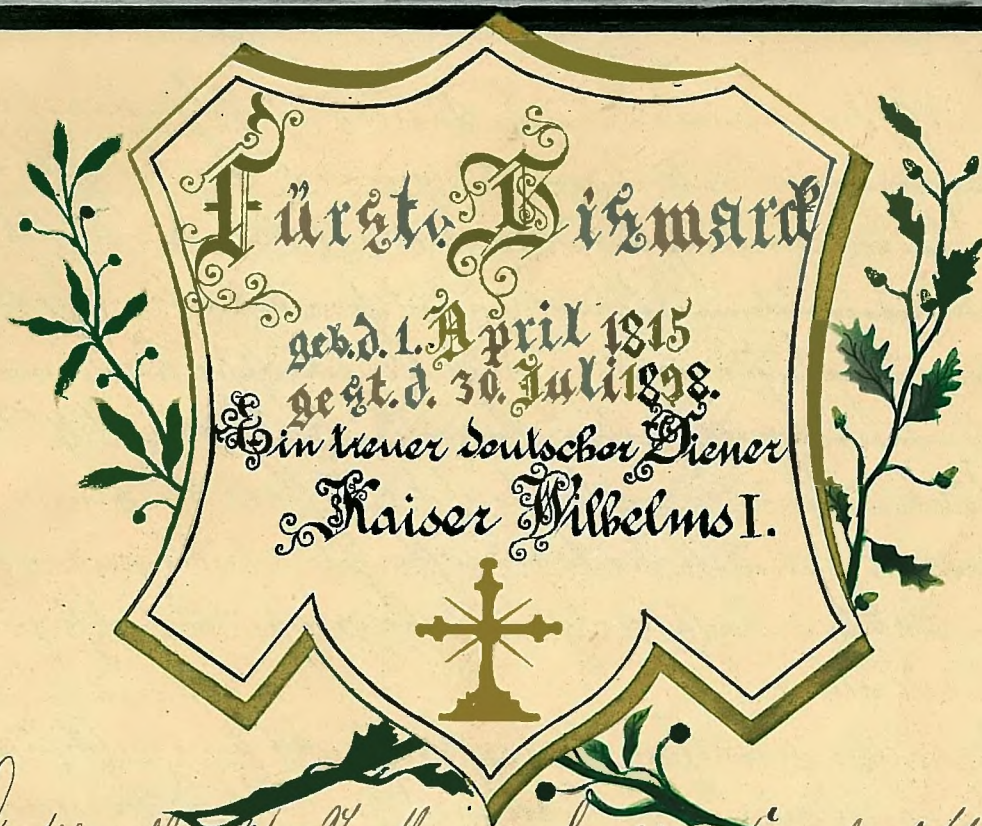 Fürst v. Bismarck
geb. d. 1. April 1815
gest. d. 30. Juli 1898.
Ein treuer deutscher Diener
Kaiser Wilhelms I.